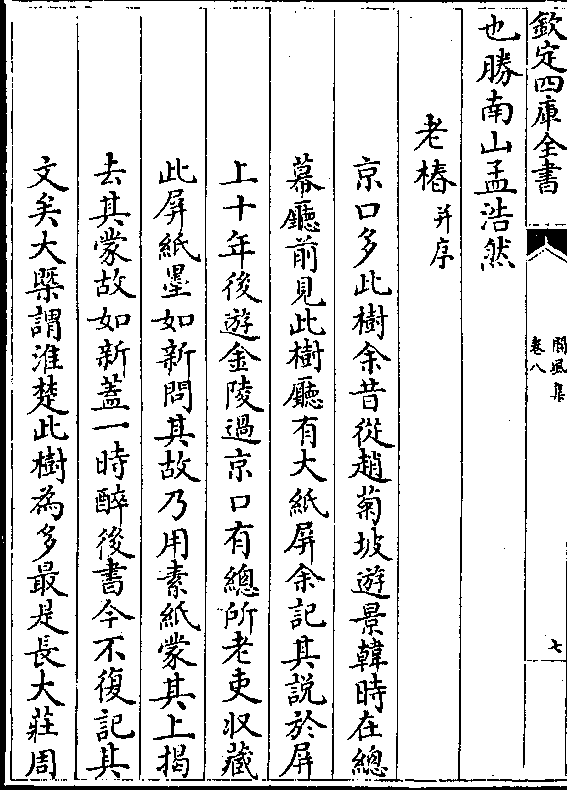 欽定四庫全書
閬風集
卷八
七
也勝南山孟浩然
老椿并序
京口多此樹余昔從趙菊坡遊景韓時在總
幕廳前見此樹廳有大紙屏余記其說於屏
上十年後遊金陵過京口有總所老吏収藏
此屏紙墨如新問其故乃用素紙蒙其上揭
去其蒙故如新蓋一時醉後書今不復記其
文矣大槩謂淮楚此樹為多最是長大莊周